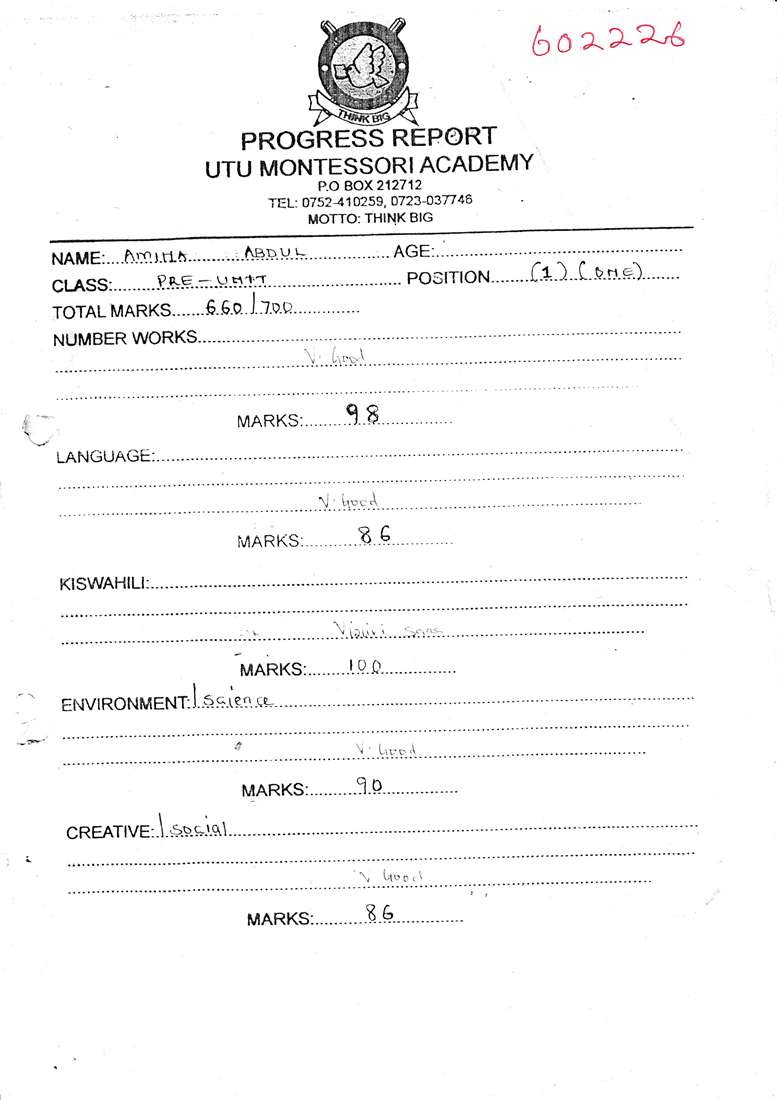 602226
THINK BIG
PROGRESS REPORT
UTU MONTESSORI ACADEMY
P.O BOX 212712
TEL: 0752-410259, 0723-037746
MOTTO: THINK BIG
NAME: AMINA ABDUL AGE:
CLASS: PRE-UNIT POSITION (1) (ONE)
TOTAL MARKS 660/700
NUMBER WORKS
V. Good
MARKS: 98
LANGUAGE:
V. Good
MARKS: 86
KISWAHILI:
Vizuri sana
MARKS: 100
ENVIRONMENT: / Science
V. Good
MARKS: 90
CREATIVE: / social
V. Good
MARKS: 86